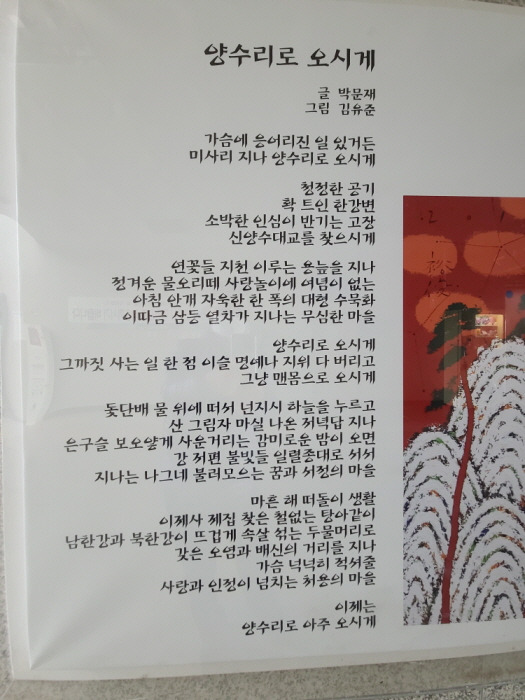 양수리로 오시게
글 박문재
그림 김유준
가슴에 응어리진 일 있거든
미사리 지나 양수리로 오시게
청정한 공기
확 트인 한강변
소박한 인심이 반기는 고장
신양수대교를 찾으시게
연꽃들 지천 이루는 용늪을 지나
정겨운 물오리떼 사랑놀이에 여념이 없는
아침 안개 자욱한 한 폭의 대형 수묵화
이따금 삼등 열차가 지나는 무심한 마을
양수리로 오시게
그까짓 사는 일 한 점 이슬 명예나 지위 다 버리고
그냥 맨몸으로 오시게
돛단배 물 위에 떠서 넌지시 하늘을 누르고
산 그림자 마실 나온 저녁답 지나
은구슬 보오얗게 사운거리는 감미로운 밤이 오면
강 저편 불빛들 일렬종대로 서서
지나는 나그네 불러모으는 꿈과 서정의 마을
마흔 해 떠돌이 생활
이제사 제집 찾은 철없는 탕아같이
남한강과 북한강이 뜨겁게 속살 섞는 두물머리로
갖은 오염과 배신의 거리를 지나
가슴 넉넉히 적셔줄
사랑과 인정이 넘치는 처용의 마을
이제는
양수리로 아주 오시게